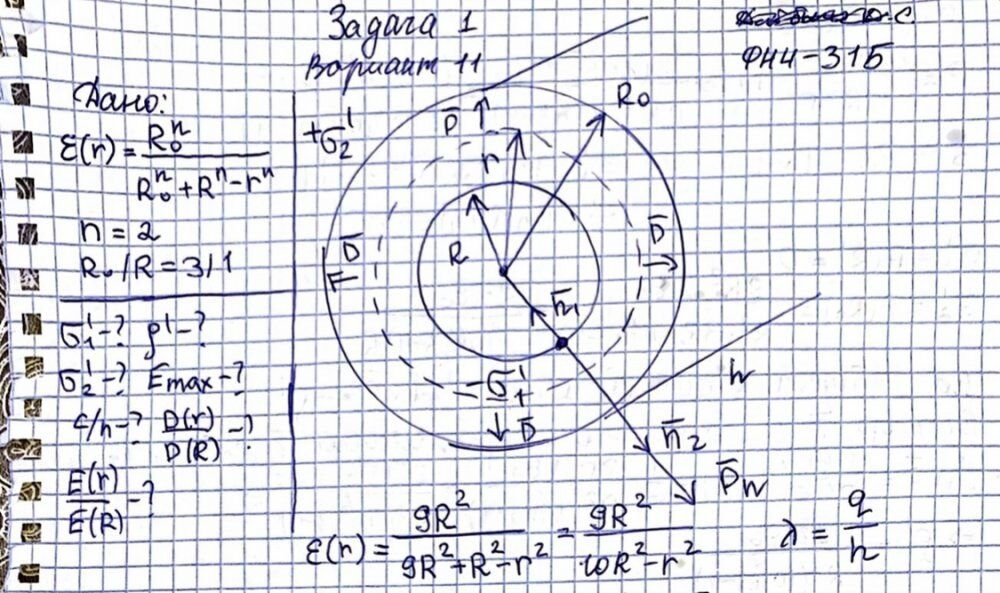 Задача 1
Вариант 11
О.С.
ФН4-31Б
Дано:
ε(r) = R₀ⁿ / (R₀ⁿ + Rⁿ - rⁿ)
n = 2
R₀/R = 3/1
σ₁' - ? ρ' - ?
σ₂' - ? Emax - ?
C/h - ? D(r)/D(R) - ?
E(r)/E(R) - ?
+σ₂'
D̄
R₀
r
D̄
R
D̄
n̄₁
-σ₁'
D̄
h
n̄₂
ε(r) = 9R² / (9R² + R² - r²) = 9R² / (10R² - r²)
λ = q/h